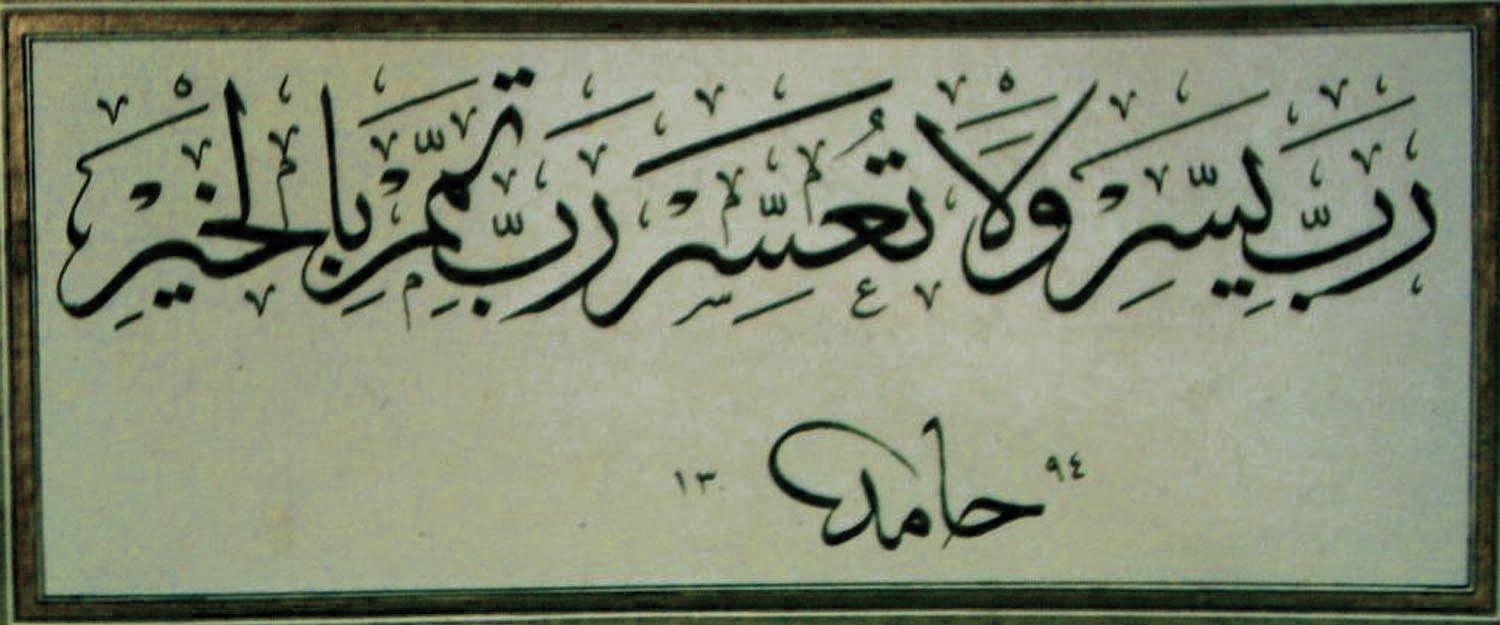 رَبِّ يَسِّرْ وَلَا تُعَسِّرْ رَبِّ تَمِّمْ بِالْخَيْرِ
١٣ حامد ٩٤